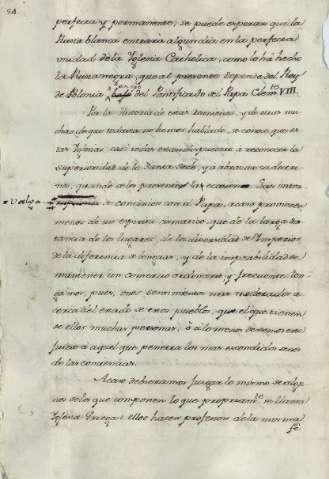 perfecta y permanente, se puede esperar que la
Rusia blanca entraria algun dia en la perfecta
unidad de la Iglesia Catholica, como lo ha hecho
la Rusia negra, que al presente depende del Rey
de Polonia del Pontificado del Papa Clem.te VIII.
Por la Historia de estas naciones, y de otras mu-
chas de que todavia no hemos hablado, se conoce que es-
tas Iglesias casi todas estan dispuestas a reconocer la
superioridad de la Santa Sede, y a abrazar su doctri-
na, quando se les presenta la ocasion.
se comunican con el Papa, acaso proviene
menos de un espiritu cismatico que de la larga dis-
tancia de los lugares, de la diversidad de Imperios
de la diferencia de lenguas, y de la imposibilidad de
mantener un comercio ordinario, y frecuente. Ten-
gamos, pues, unos sentimientos mas moderados a
cerca del estado de estos pueblos, que el que tienen
de ellos muchas personas, ó a lo menos dexemos el
juicio a aquel que penetra los mas escondidos senos
de las conciencias.
Acaso debieramos juzgar lo mismo de algu-
nos de los que componen lo que propriam.te se llama
Iglesia Griega: ellos hacen profesion de la misma
fe